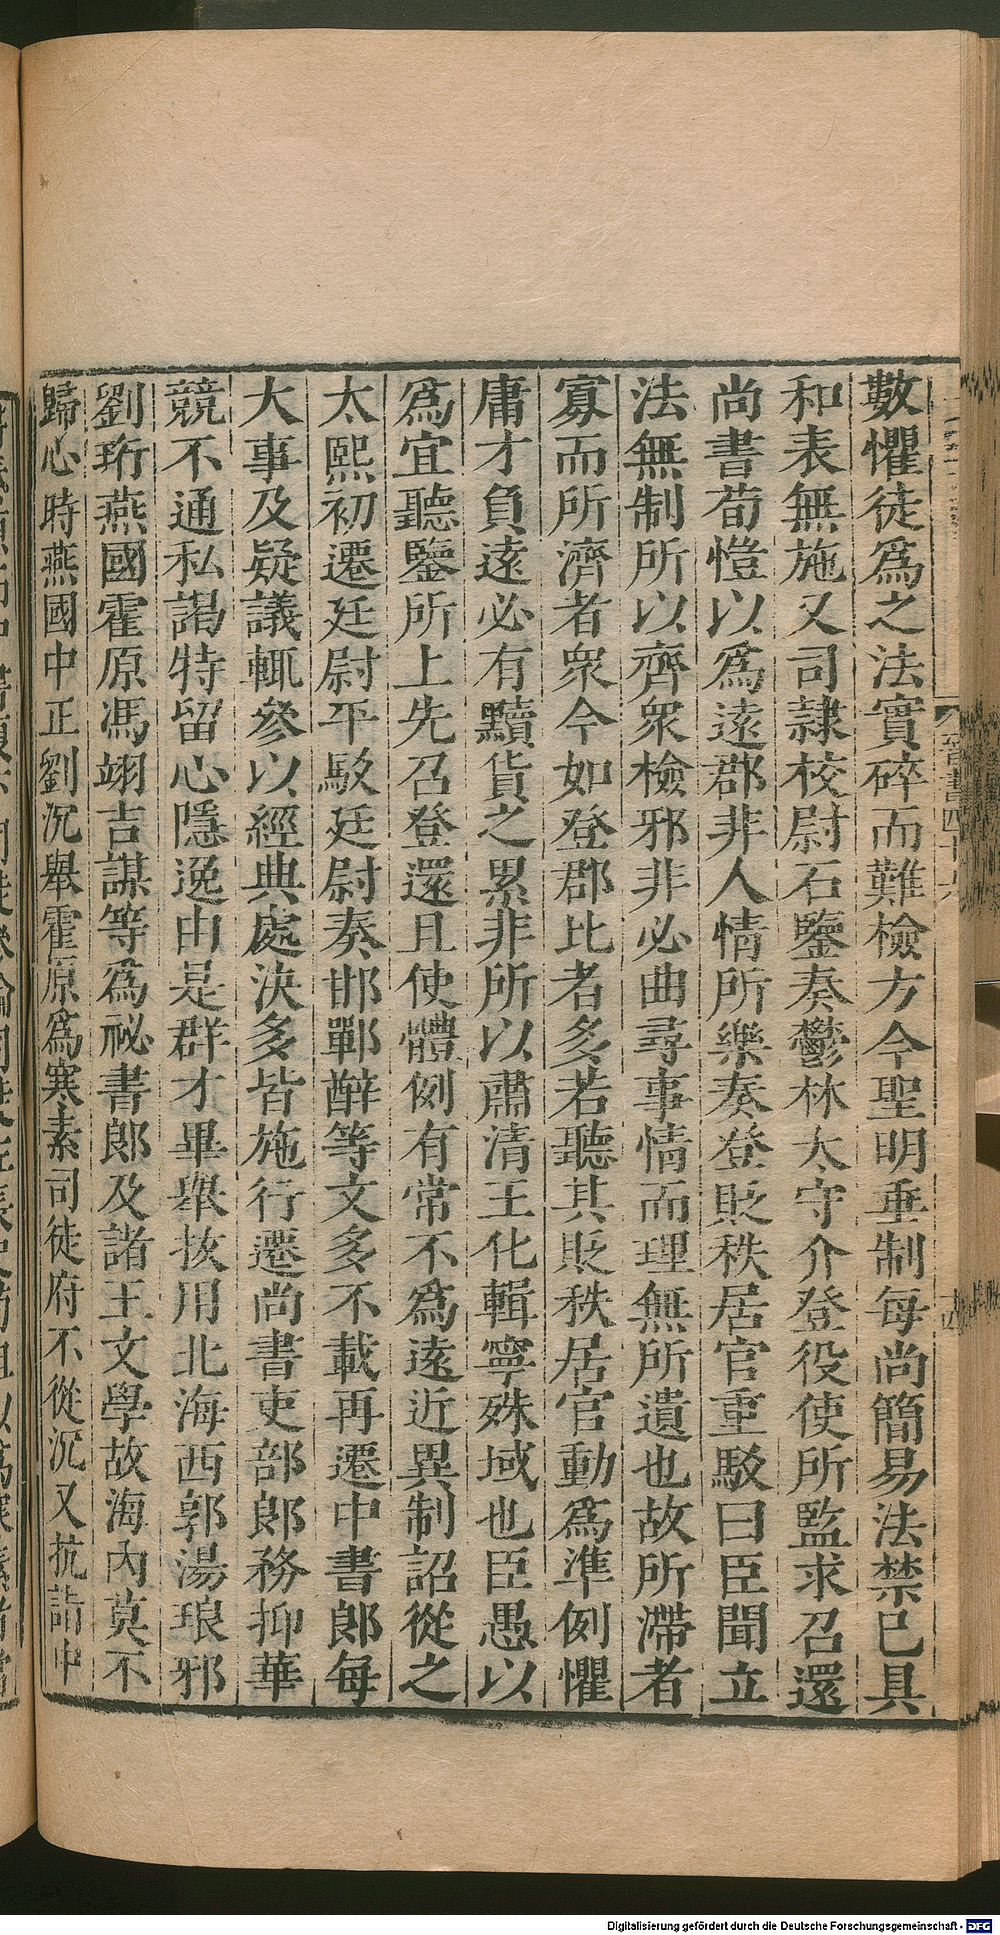 數懼徒爲之法實碎而難檢方今聖明垂制每尚簡易法禁已具
和表無施又司隷校尉石鑒奏鬱林太守介登役使所監求召還
尚書荀愷以爲遠郡非人情所樂奏登貶秩居官重駮曰臣聞立
法無制所以齊衆檢邪非必曲尋事情而理無所遺也故所滯者
寡而所濟者衆今如登郡比者多若聽其貶秩居官動爲準例懼
庸才負遠必有黷貨之累非所以肅清王化輯寧殊域也臣愚以
爲宜聽鑒所上先召登還且使體例有常不爲遠近異制詔從之
太熙初遷廷尉平駮廷尉奏邯鄲醉等文多不載再遷中書郎每
大事及疑議輒參以經典處決多皆施行遷尚書吏部郎務抑華
競不通私謁特留心隱逸由是群才畢舉拔用北海西郭湯琅邪
劉珩燕國霍原馮翊吉謀等爲祕書郎及諸王文學故海內莫不
歸心時燕國中正劉沉舉霍原爲寒素司徒府不從沉又抗詣中
Digitalisierung gefördert durch die Deutsche Forschungsgemeinschaft - DFG